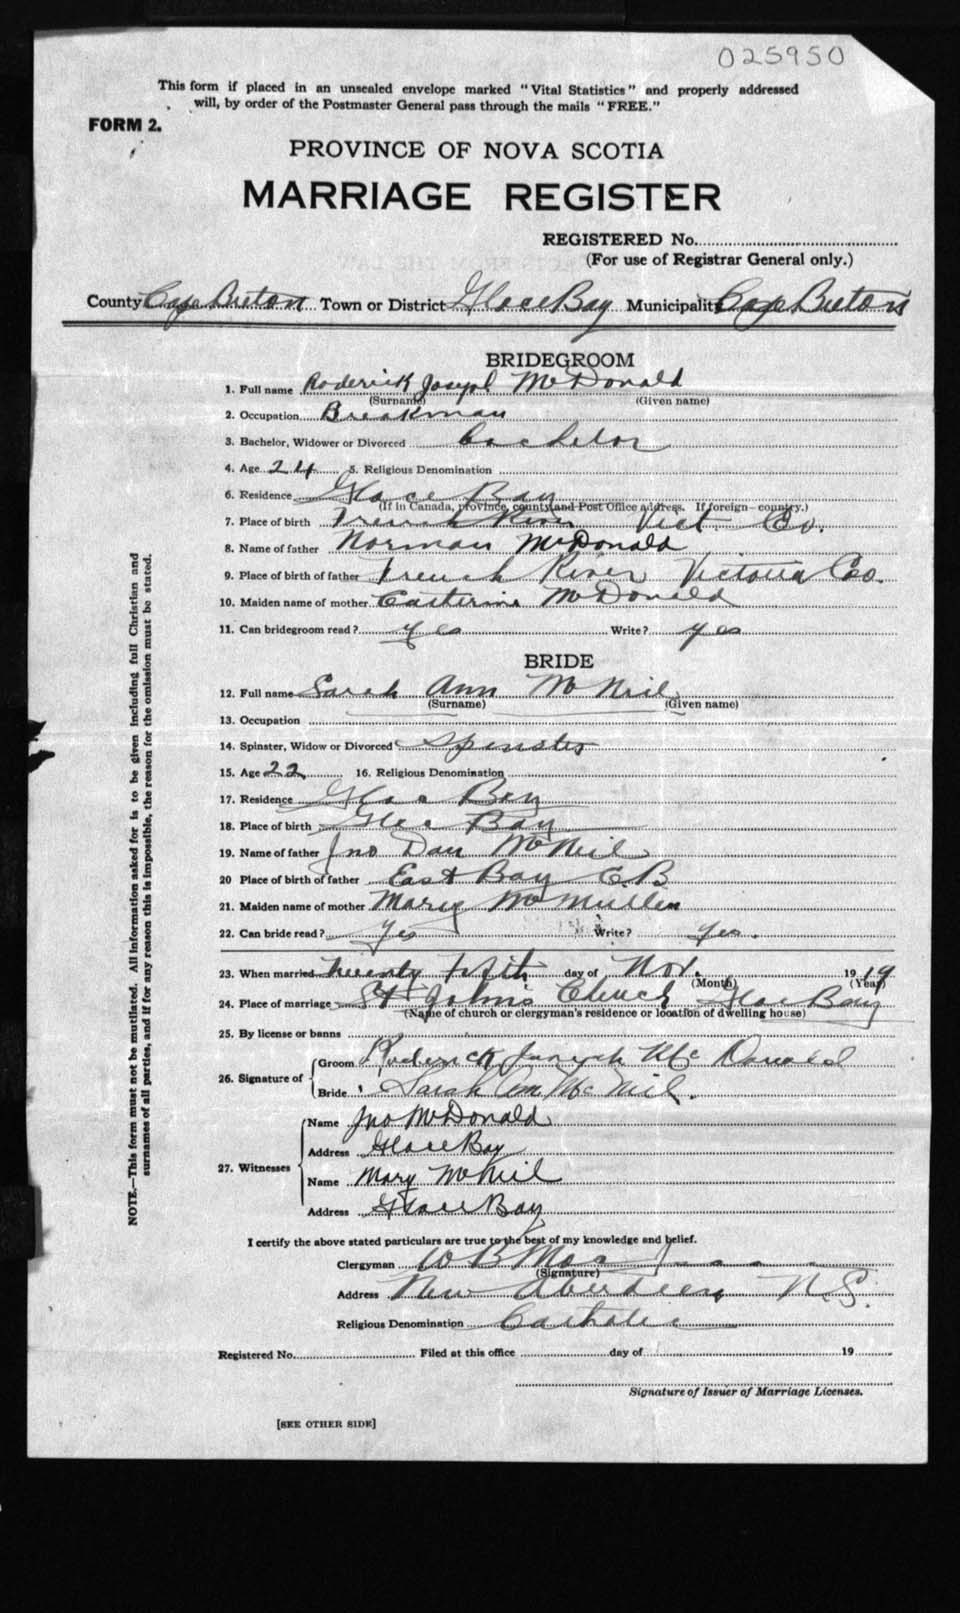 025950
This form if placed in an unsealed envelope marked "Vital Statistics" and properly addressed
will, by order of the Postmaster General pass through the mails "FREE."
FORM 2.
PROVINCE OF NOVA SCOTIA
MARRIAGE REGISTER
REGISTERED No.
(For use of Registrar General only.)
County Cape Breton Town or District Glace Bay Municipality Cape Breton
BRIDEGROOM
1. Full name Roderick Joseph McDonald
(Surname) (Given name)
2. Occupation Breakman
3. Bachelor, Widower or Divorced bachelor
4. Age 24 5. Religious Denomination
6. Residence Glace Bay
(If in Canada, province, county and Post Office address. If foreign—country.)
7. Place of birth French River Vict Co.
8. Name of father Norman McDonald
9. Place of birth of father French River Victoria Co.
10. Maiden name of mother Catherine McDonald
11. Can bridegroom read? yes Write? yes
BRIDE
12. Full name Sarah Ann McNeil
(Surname) (Given name)
13. Occupation
14. Spinster, Widow or Divorced Spinster
15. Age 22 16. Religious Denomination
17. Residence Glace Bay
18. Place of birth Glace Bay
19. Name of father Jno Dan McNeil
20 Place of birth of father East Bay C.B
21. Maiden name of mother Mary McMullin
22. Can bride read? Yes Write? Yes.
23. When married Twenty fifth day of Nov. 1919
(Month) (Year)
24. Place of marriage St John's Church Glace Bay
(Name of church or clergyman's residence or location of dwelling house)
25. By license or banns
26. Signature of Groom Roderick Joseph McDonald
Bride Sarah Ann McNeil.
27. Witnesses
Name Jno McDonald
Address Glace Bay
Name Mary McNeil
Address Glace Bay
I certify the above stated particulars are true to the best of my knowledge and belief.
Clergyman W B
(Signature)
Address New Aberdeen, N.S.
Religious Denomination Catholic
Registered No. Filed at this office day of 19
Signature of Issuer of Marriage Licenses.
[SEE OTHER SIDE]
NOTE.—This form must not be mutilated. All information asked for is to be given including full Christian and
surnames of all parties, and if for any reason this is impossible, the reason for the omission must be stated.